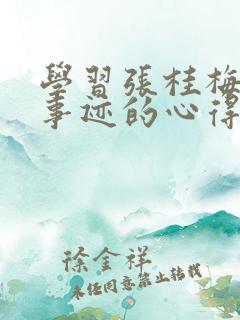 學習張桂梅
事迹的心得
徐金祥
未经同意禁止转载